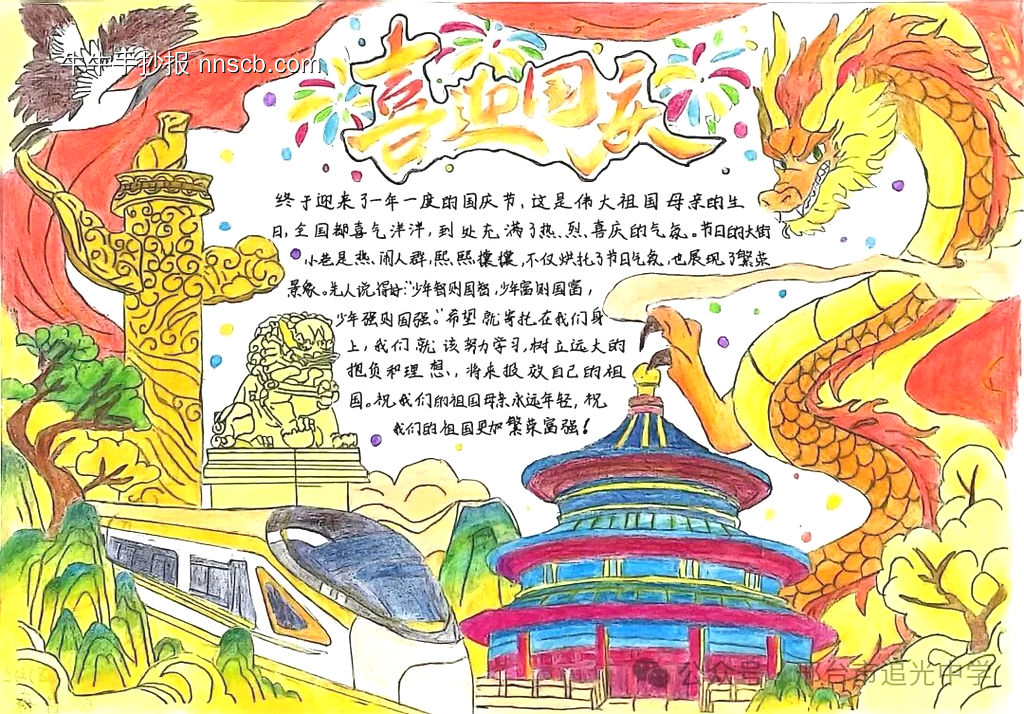 牛牛手抄报 nnscb.com
喜迎国庆
终于迎来了一年一度的国庆节，这是伟大祖国母亲的生
日，全国都喜气洋洋，到处充满了热、烈、喜庆的气氛。节日的大街
小巷是热、闹人群，熙熙攘攘，不仅烘托了节日气氛，也展现了繁荣
景象。先人说得好："少年智则国智，少年富则国富，
少年强则国强。"希望就寄托在我们身
上，我们就该努力学习，树立远大的
抱负和理想、，将来报效自己的祖
国。祝我们的祖国母亲永远年轻，祝
我们的祖国更加繁荣富强！
公众号 台市追光中学